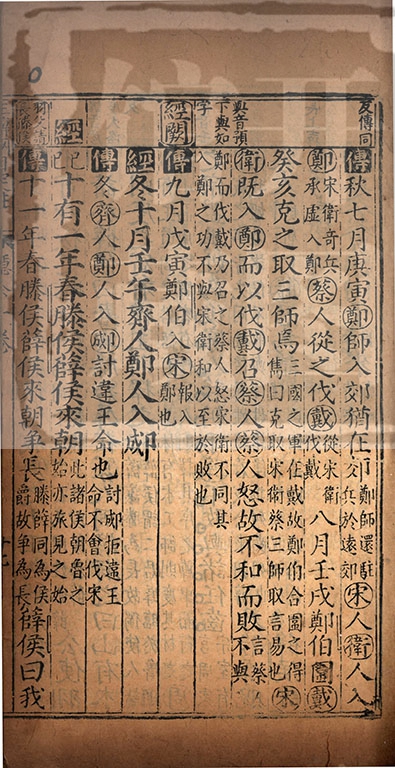 友傳同
傳秋七月庚寅鄭師入郊猶在郊鄭師還駐兵於遠郊宋人衛人入
鄭宋衛奇兵承虛入鄭蔡人從之伐戴從宋衛伐戴八月壬戌鄭伯圍戴
癸亥克之取三師焉三國之軍在戴故鄭伯合圍之得雋曰克取宋衛蔡三師取言易也宋
衛既入鄭而以伐戴召蔡人蔡人怒故不和而敗言蔡人不與
與音預下與如字
鄭而伐戴乃召之蔡人怒宋衛不同其
入鄭之功不與宋衛和以至於敗也
經闕
傳九月戊寅鄭伯入宋報入鄭也
經冬十月壬午齊人鄭人入郕
傳冬齊人鄭人入郕討違王命也討郕拒違王命不會伐宋
經
十有一年春滕侯薛侯來朝此諸侯朝魯之始亦旅見之始
傳十一年春滕侯薛侯來朝爭長滕薛同為侯爵故爭為長薛侯曰我